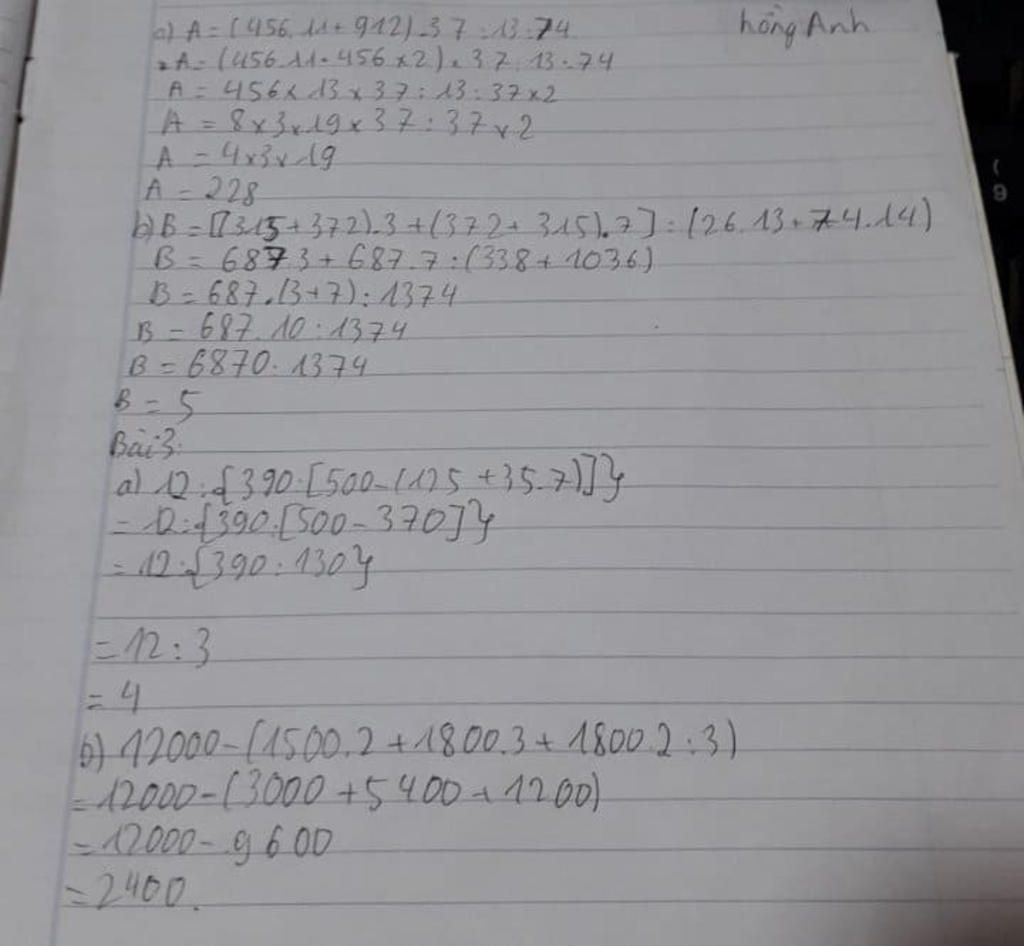 hồng Anh
a) A = (456.11 + 912).37 : 13 : 74
A = (456.11 + 456 x 2).37 : 13 : 74
A = 456 x 13 x 37 : 13 : 37 x 2
A = 8 x 3 x 19 x 37 : 37 x 2
A = 4 x 3 x 19
A = 228
b) B = [(315 + 372).3 + (372 + 315).7] : (26.13 + 74.14)
B = 687 3 + 687.7 : (338 + 1036)
B = 687.(3+7) : 1374
B = 687.10 : 1374
B = 6870 : 1374
B = 5
Bài 3:
a) 12 : {390 : [500 - (125 + 35.7)]}
= 12 : {390 : [500 - 370]}
= 12 : {390 : 130}
= 12 : 3
= 4
b) 12000 - (1500.2 + 1800.3 + 1800.2 : 3)
= 12000 - (3000 + 5400 + 1200)
= 12000 - 9600
= 2400.